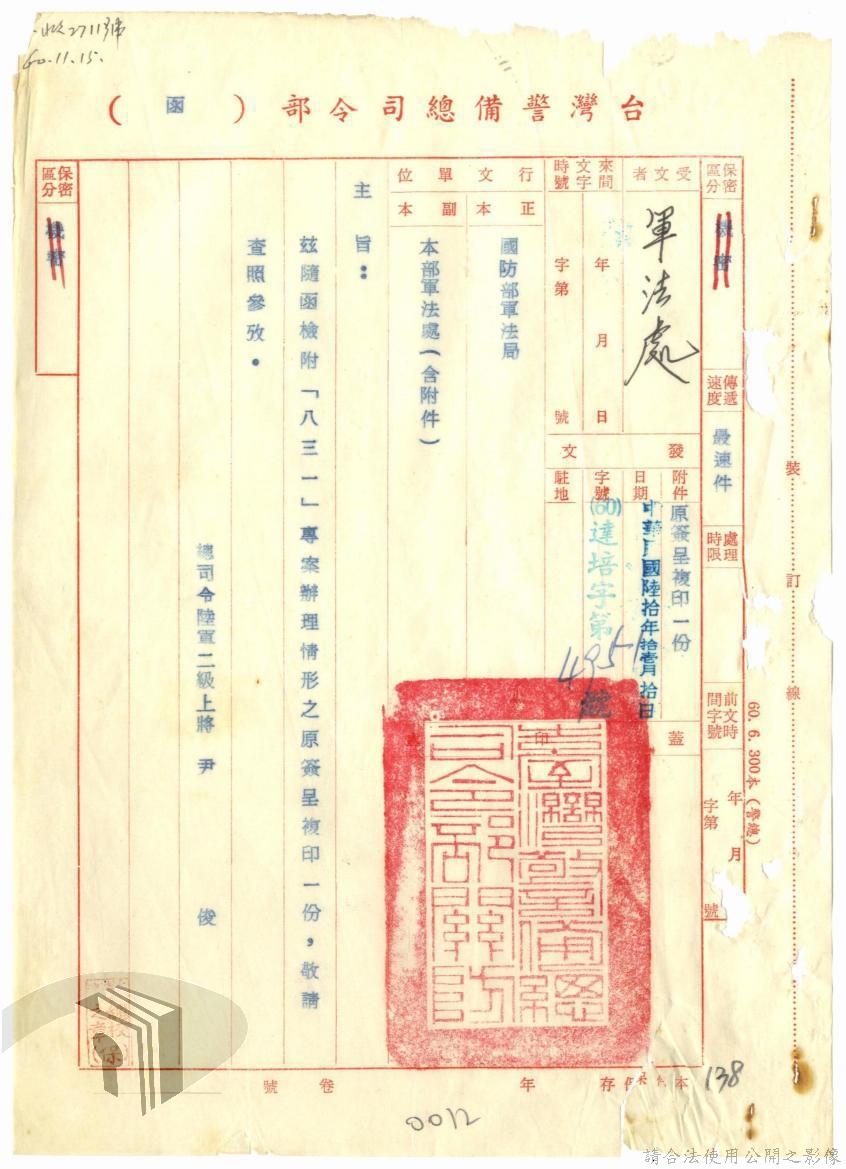 60.11.15.
台灣警備總司令部（函）
保密區分
機密
傳遞速度
最速件
處理時限
前文時間字號
年 月
字第 號
受文者
軍法處
來文時間字號
年 月 日
字第 號
行文單位
正本
國防部軍法局
副本
本部軍法處（含附件）
發文
附件
原簽呈複印一份
日期
中華民國陸拾年拾壹月拾日
字號
(60)達培字第4951號
駐地
蓋印
臺灣警備總司令部關防
主旨：
玆隨函檢附「八三一」專案辦理情形之原簽呈複印一份，敬請
查照參攷。
總司令陸軍二級上將 尹 俊
保密區分
機密
裝訂線
60. 6. 300本（警總）
本件保存 年 卷 號
138
0012
請合法使用公開之影像